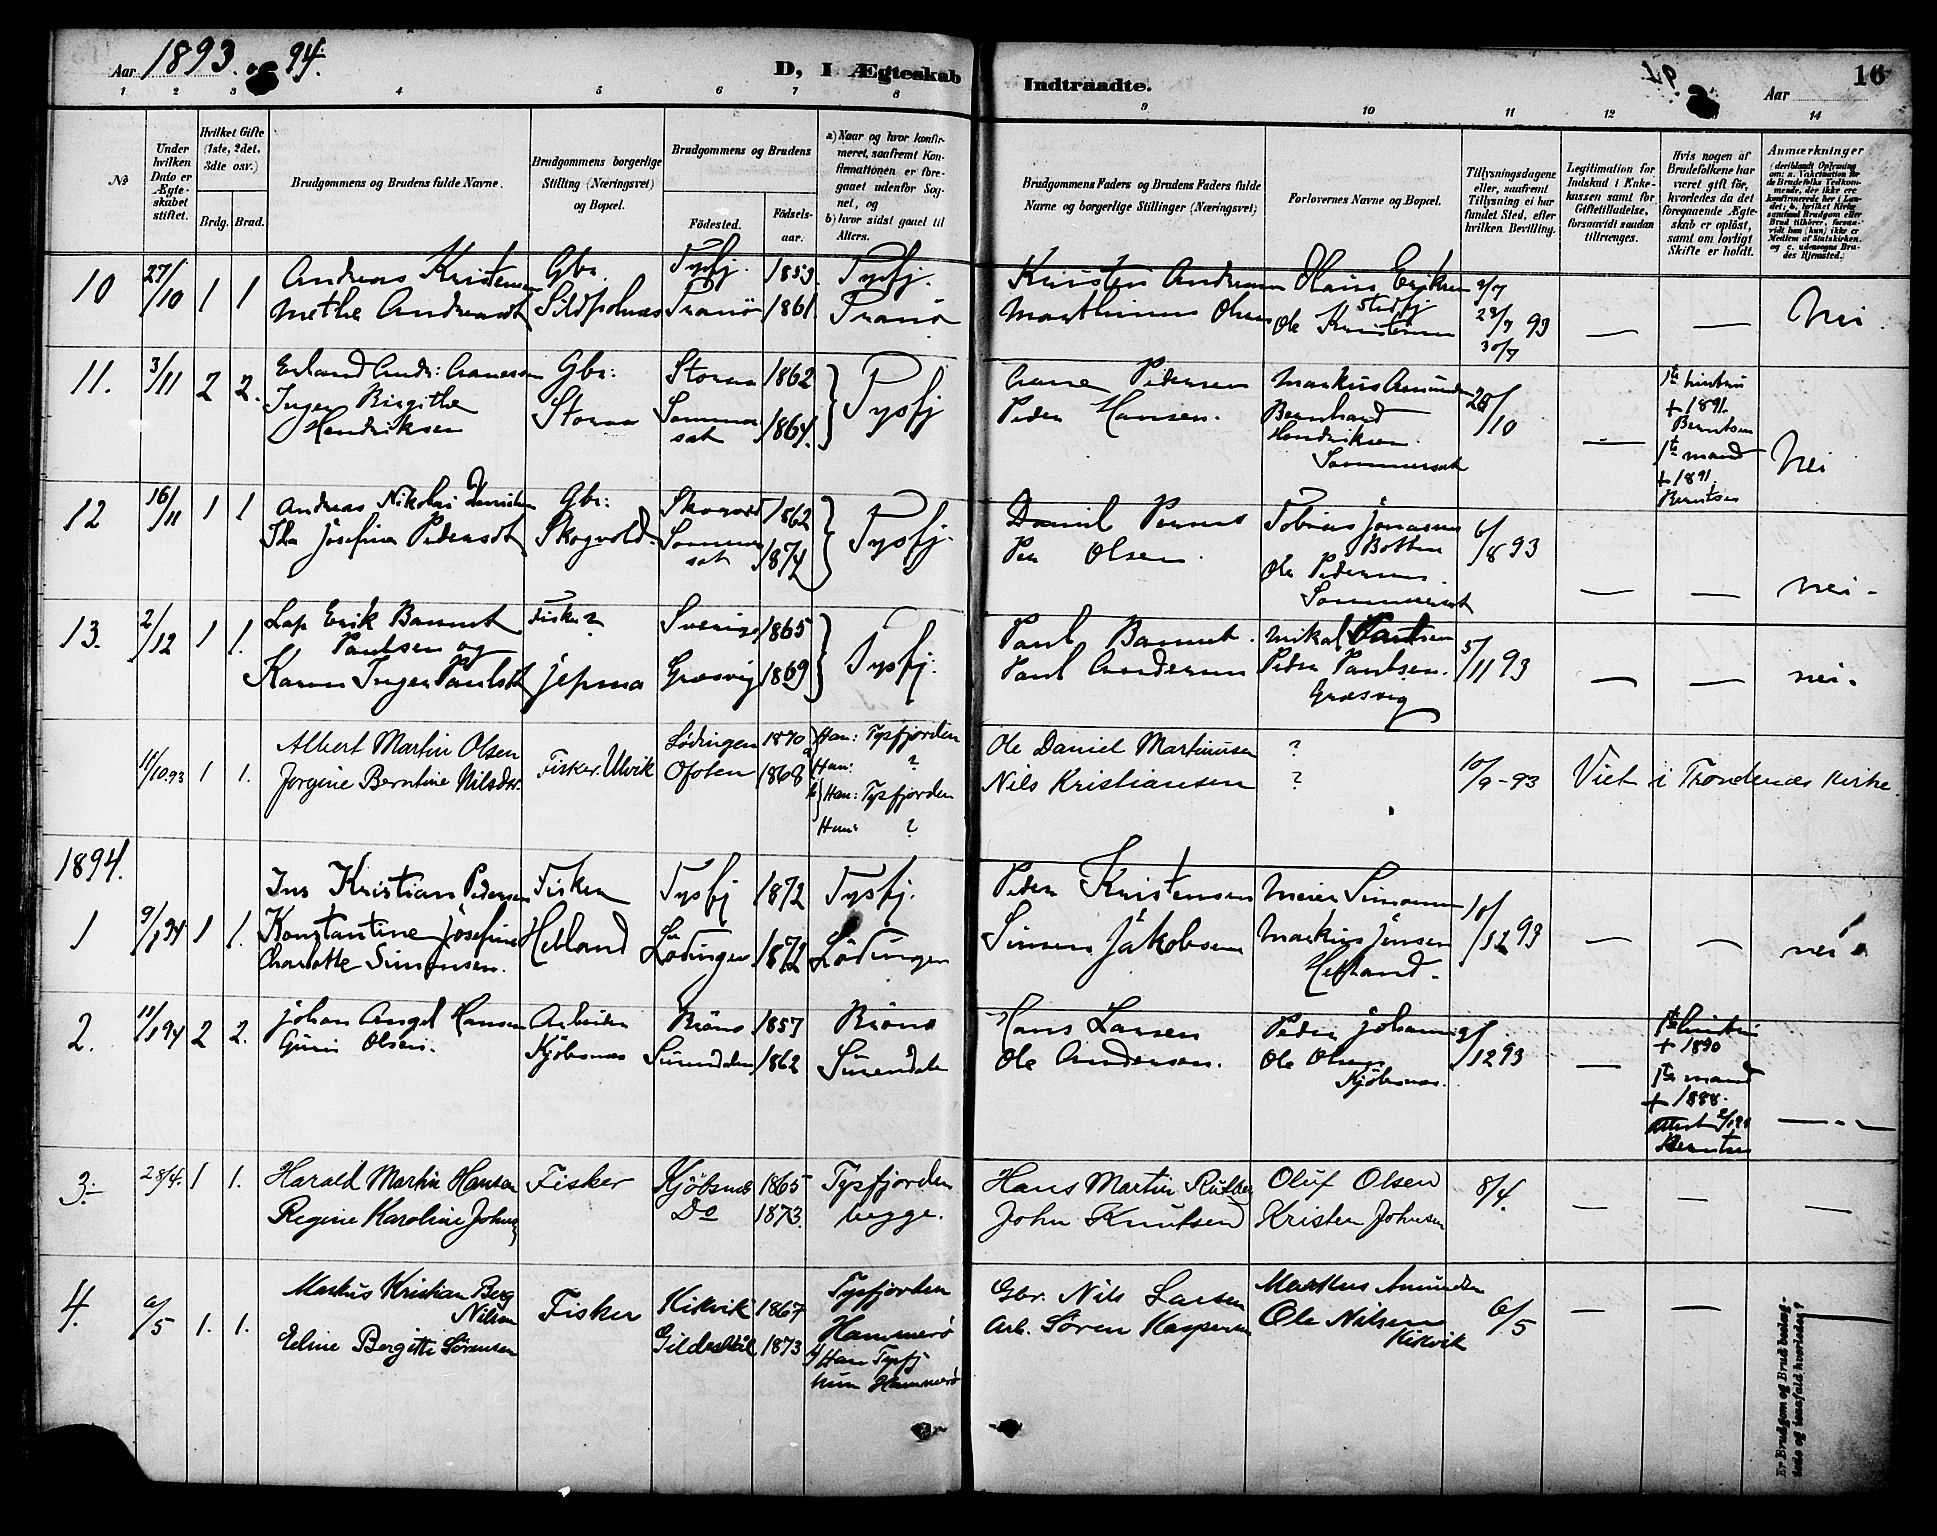 Aar 1893. og 94.
D, I Ægteskab Indtraadte.
Aar 16
1 2 3 4 5 6 7 8 9 10 11 12 14
No
Under hvilken Dato er Ægteskabet stiftet.
Hvilket Gifte (1ste, 2det, 3die osv.)
Brdg. Brud.
Brudgommens og Brudens fulde Navne.
Brudgommens borgerlige Stilling (Næringsvei) og Bopæl.
Brudgommens og Brudens
Födested.
Födselsaar.
a) Naar og hvor konfirmeret, saafremt Konfirmationen er foregaaet udenfor Sognet, og
b) hvor sidst gaaet til Alters.
Brudgommens Faders og Brudens Faders fulde Navne og borgerlige Stillinger (Næringsvei)
Forlovernes Navne og Bopæl.
Tillysningsdagene eller, saafremt Tillysning ei har fundet Sted, efter hvilken Bevilling.
Legitimation for Indskud i Enkekassen samt for Giftetilladelse, forsaavidt saadan tiltrænges.
Hvis nogen af Brudefolkene har været gift för, hvorledes da det foregaaende Ægteskab er oplöst, samt om lovligt Skifte er holdt.
Anmærkninger
10 27/10 1 1 Andreas Kristensen Gbr. Tysfj. 1859 Tysfj. Kristen Andreasen Hans Eriksen 2/7
Methe Andreasdt Sildpolnes Tranö 1861. Tranö Marthinus Olsen Ole Kristensen 23/7 93 — — Nei.
30/7
11. 3/11 2 2. Erland Andr: Aanesen Gbr: Storaa 1862 Tysfj Aane Pedersen Markus Amundsen 20/10
Inger Birgithe Storaa Sommersat 1864. Peder Hansen. Bernhard —
Hendriksen Hendriksen.
Sommersat
1te hustru + 1891. Berntsen
1te mand + 1891. Berntsen
Nei
12 16/11 1 1 Andreas Nikolai Danielsen Gbr: Skogvold 1862 Tysfj. Daniel Tobias Jonassen 6/8 93
Ida Josefine Pedersdt Skogvold. Sommersat 1874 Per Olsen. Botten
Ole Pedersen.
Sommersat — — nei.
13. 2/12 1 1. Lap Erik Bannut Fisker Sverige 1865 Tysfj. Paul Bannut. Mikal Paulsen 5/11 93
Paulsen og
Karen Inger Paulsdt Græsvig 1869 Paul Andersen Peder Paulsen.
Græsvig — — nei.
11/10.93 1 1. Albert Martin Olsen Fisker. Ulvik Lødingen 1870 a) Han: Tysfjorden Ole Daniel Martinusen ? 10/9-93 Viet i Trondenæs Kirke.
Jørgine Berntine Nilsdtr. Ofoten 1868 Hun: ? Nils Kristiansen ?
b) Han: Tysfjorden
Hun: ?
1894.
1 9/1 94 1 1. Jns Kristian Pedersen Fisker Tysfj 1872 Tysfj. Peder Kristensen Meier Simonsen 10/12 93
Konstantine Josefine Helland Lödingen 1872 Lödingen Simen Jakobsen Markus Jensen — — nei.
Charlotte Simonsen. Helland.
2. 11/1 94 2 2. Johan Angel Hansen Arbeider Brönö 1857 Brönö Hans Larsen Peder Johansen 12 93
Guri Olsen. Kjöbsnes Surendalen 1862 Surendale Ole Andersen. Ole Olsen —
Kjöbsnes.
1te hustru + 1890
1te mand + 1888.
Attest
Berntsen
3. 28/4. 1 1. Harald Martin Hansen Fisker Kjöbsnæs 1865 Tysfjorden Hans Martin Oluf Olsen 8/4. — — —
Regine Karoline Johns Do 1873. begge. John Knutsen Kristen Johnsen
4. 6/5 1. 1. Markus Kristian Berg Fisker Kikvik 1867 Tysfjorden Gbr. Nils Larsen Markus Amundsen 6/5 — —
Nilsen
Edine Bergitte Sørensen Gildeskål 1873 Hammerö Arb. Søren Kaspersen Ole Nilsen
b) Han Tysfj Kikvik
hun Hammerö
Er Brudgom og Brud beslægtede og isaafald hvorledes?